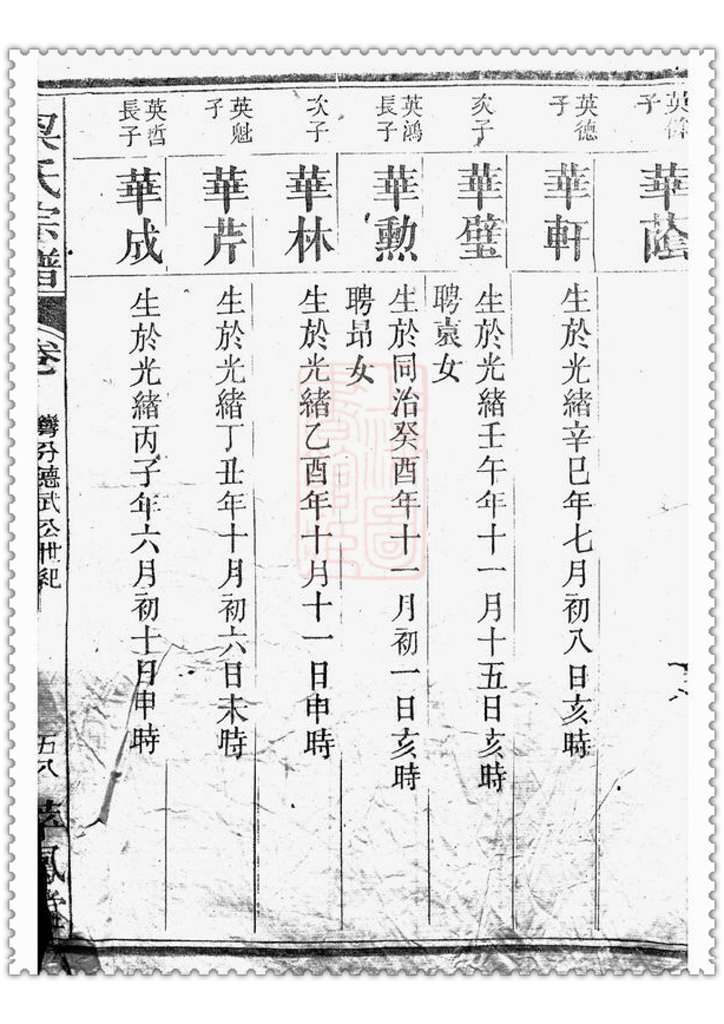 英
子
華蔭
英德
子
華軒
生於光緒辛巳年七月初八日亥時
次子
華璧
生於光緒壬午年十一月十五日亥時
聘袁女
英鴻
長子
華勳
生於同治癸酉年十一月初一日亥時
聘昂女
次子
華林
生於光緒乙酉年十月十一日申時
英魁
子
華芹
生於光緒丁丑年十月初六日未時
英哲
長子
華成
生於光緒丙子年六月初十日申時
氏宗譜
卷
分德武公世紀
五八